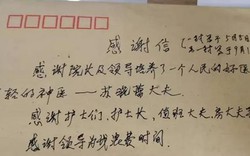 感谢信
感谢院长及领导培养了一个人民的好医
轻的神医——苏晓
大夫
感谢护士们、护士长、值班大夫、房大夫
感谢领导
费时间。